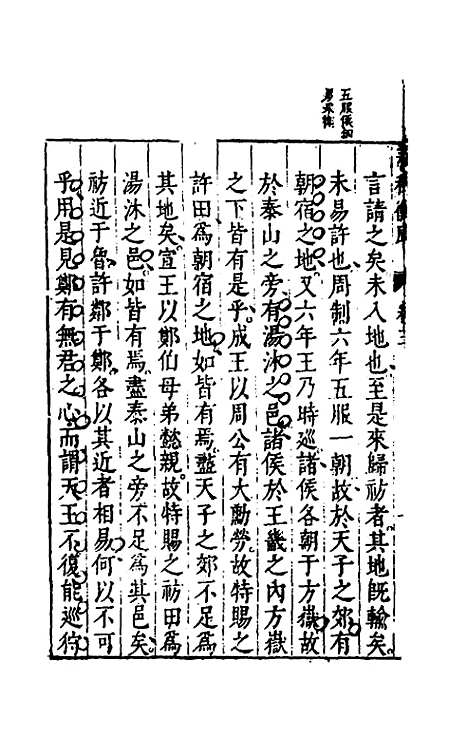 五服侯甸
男采衛
言請之矣未入地也至是來歸祊者其地既輸矣
未易許也周制六年五服一朝故於天子之郊有
朝宿之地又六年王乃時巡諸侯各朝于方嶽故
於泰山之旁有湯沐之邑諸侯於王畿之內方嶽
之下皆有是乎成王以周公有大勳勞故特賜之
許田爲朝宿之地如皆有焉盡天子之郊不足爲
其地矣宣王以鄭伯母弟懿親故特賜之祊田爲
湯沐之邑如皆有焉盡泰山之旁不足爲其邑矣
祊近于魯許鄰于鄭各以其近者相易何以不可
乎用是見鄭有無君之心而謂天王不復能巡狩